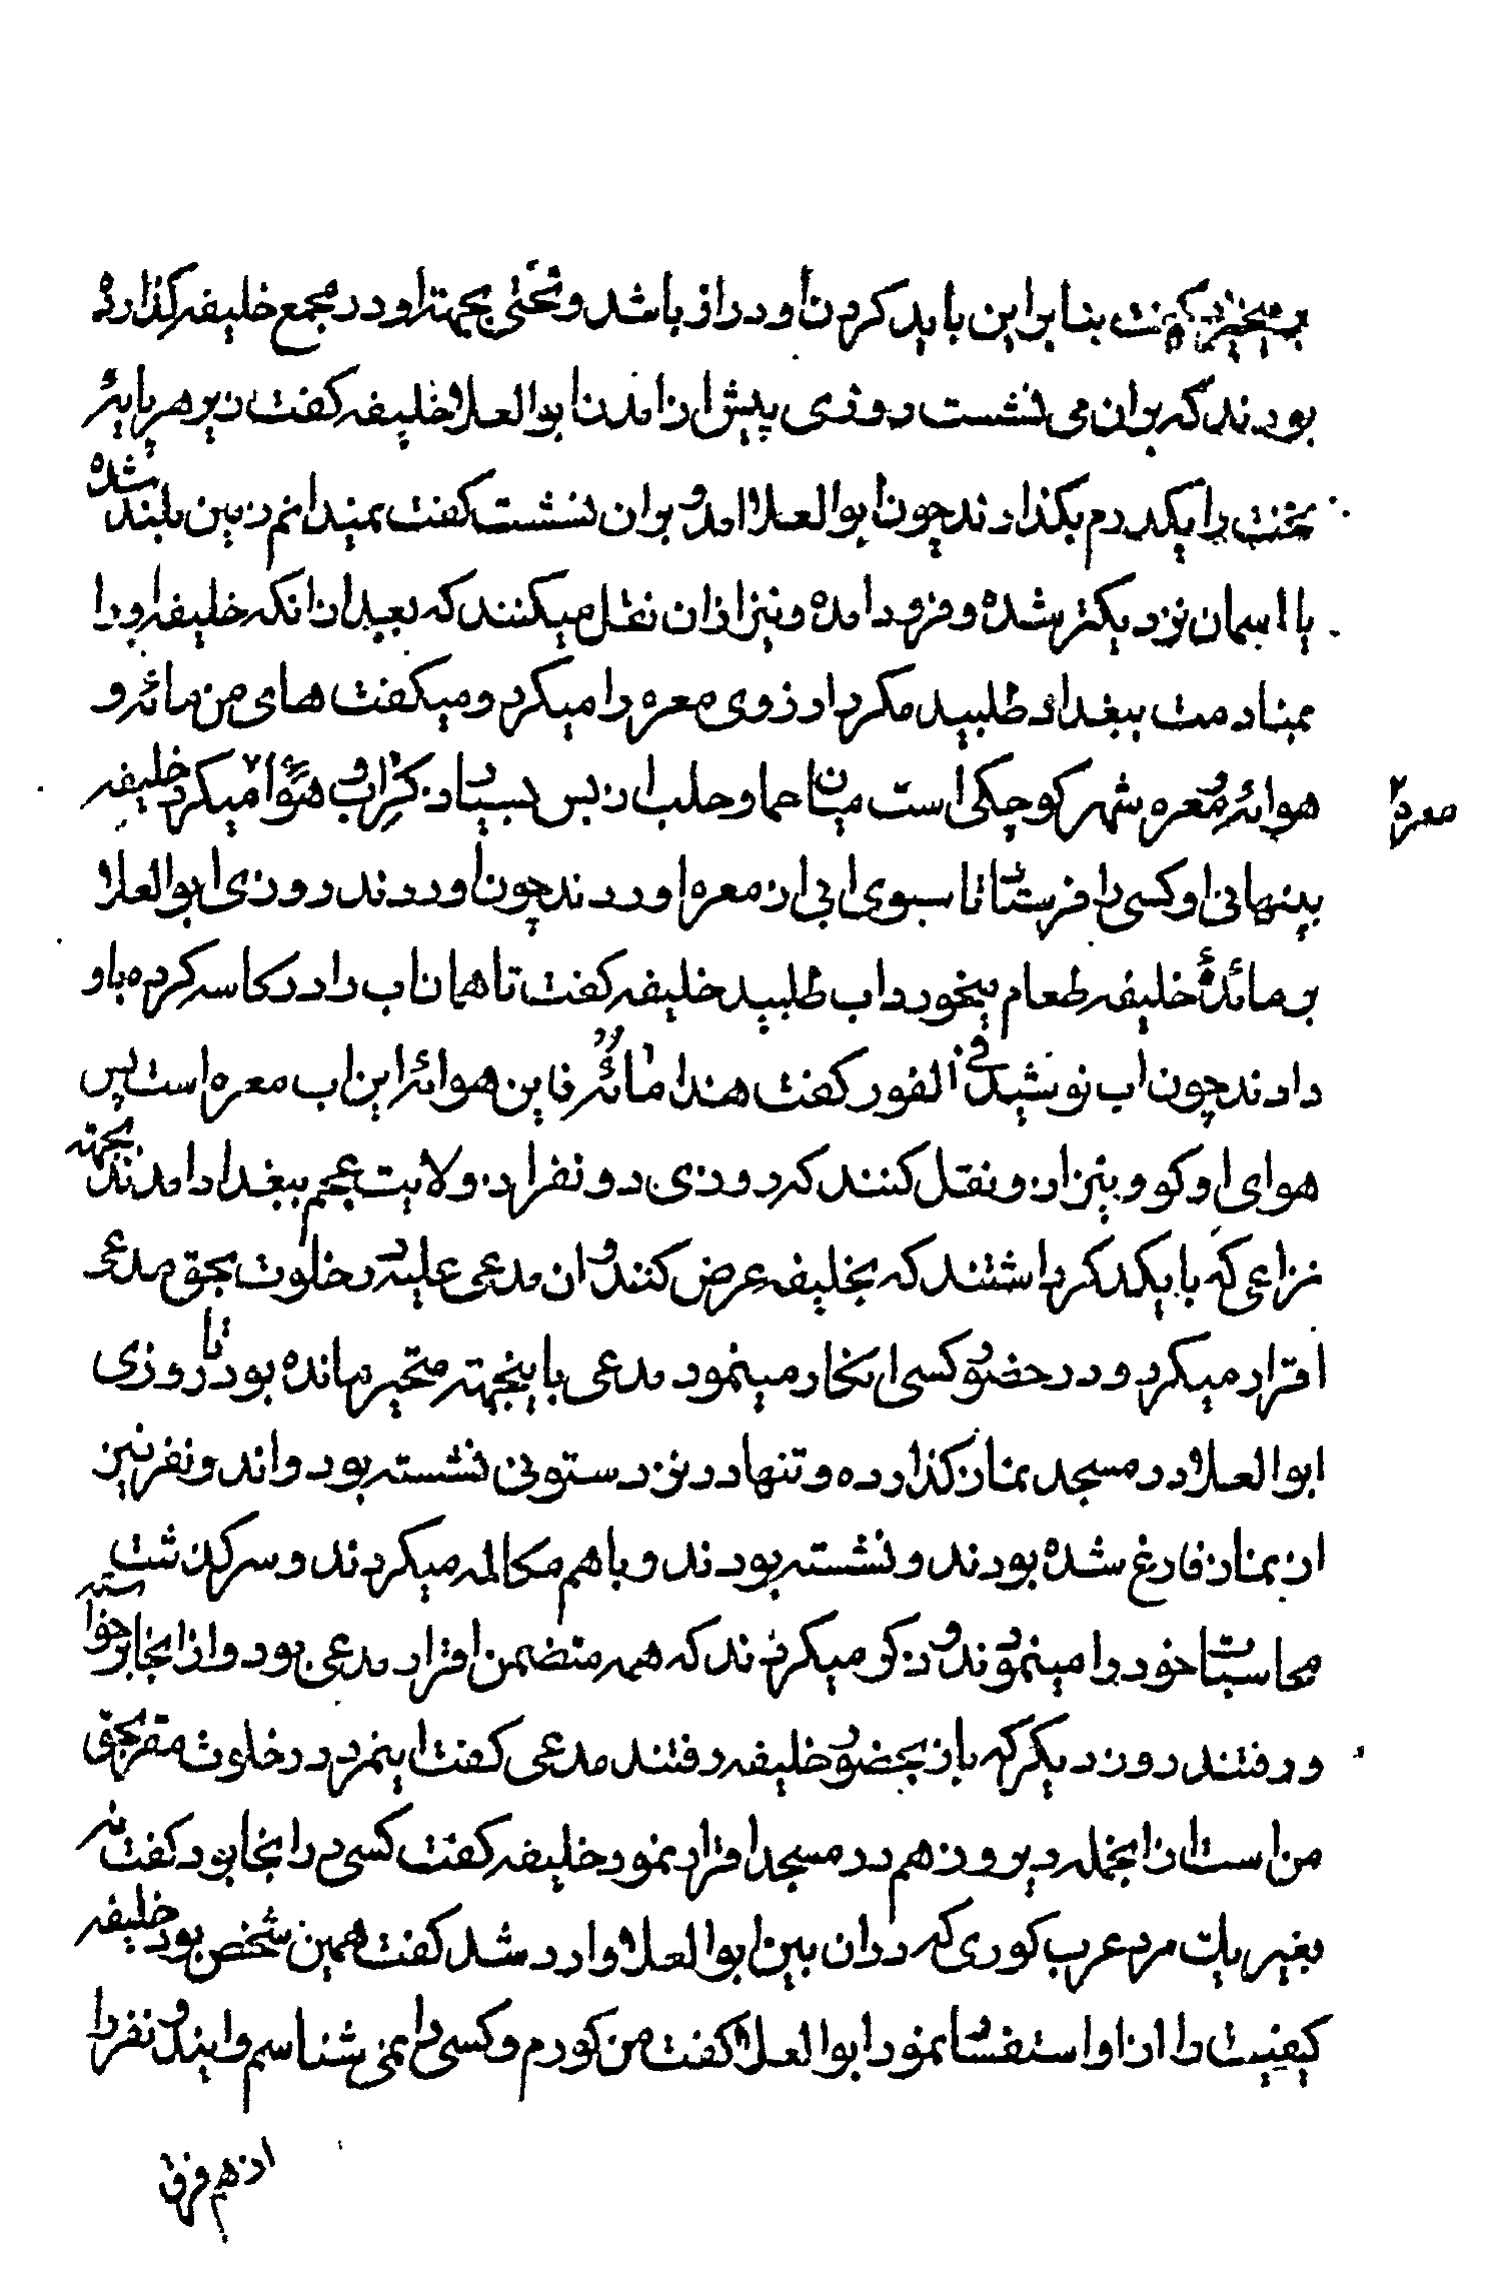 برمیخیزد گفت بنا براین باید گردن او دراز باشد و تختی بجهتة او در مجمع خلیفه گذارده
بودند که بران می نشست روزی پیش از آمدن ابوالعلا خلیفه گفت زیر هر پایۀ
تخت را یکدرم بگذارند چون ابوالعلا امد و بران نشست گفت نمیدانم زمین بلند شده
یا اسمان نزدیکتر شده و فرود امده و نیز ازان نقل میکنند که بعد از انکه خلیفه او را
بمنادمت ببغداد طلبید مکرر ارزوی معره را میکرد و میگفت های من مائه و
هوائه و معره شهر کوچکی است میان حما و حلب از بس بسیار ذکر اب و هوا میکرد خلیفه
معره
بپنهانی او کسی را فرستاد تا سبوی ابی از معره اوردند چون اوردند روزی ابوالعلا
بر مائدۀ خلیفه طعام میخورد اب طلبید خلیفه گفت تا همان اب را در کاسه کرده باو
دادند چون اب نوشید فی الفور گفت هذا مائه فاین هوائه این اب معره است پس
هوای او کو و نیز از و نقل کنند که روزی دو نفر از ولایت عجم ببغداد امدند بجهته
نزاعی که با یکدگر داشتند که بخلیفه عرض کنند و ان مدعی علیه در خلوت بحق مدعی
اقرار میکرد و در حضور کسی انکار مینمود مدعی باینجهته متحیر مانده بود تا روزی
ابوالعلا در مسجد نماز گذارده و تنها در نزد ستونی نشسته بود و اندو نفر نیز
از نماز فارغ شده بودند و نشسته بودند و باهم مکالمه میکردند و سرگذشت
محاسبات خود را مینمودند و ذکر میکردند که همه متضمن اقرار مدعی بود و از انجا برخواسته
و رفتند روز دیگر که باز بحضور خلیفه رفتند مدعی گفت اینمرد در خلوت مقر بحق
من است از انجمله دیروز هم در مسجد اقرار نمود خلیفه گفت کسی در انجا بود گفت نه
بغیر یك مرد عرب کوری که دران بین ابوالعلا وارد شد گفت همین شخص بود خلیفه
کیفیت را از او استفسار نمود ابوالعلا گفت من کورم و کسی را نمی شناسم و ایندو نفر را
از هم فرق